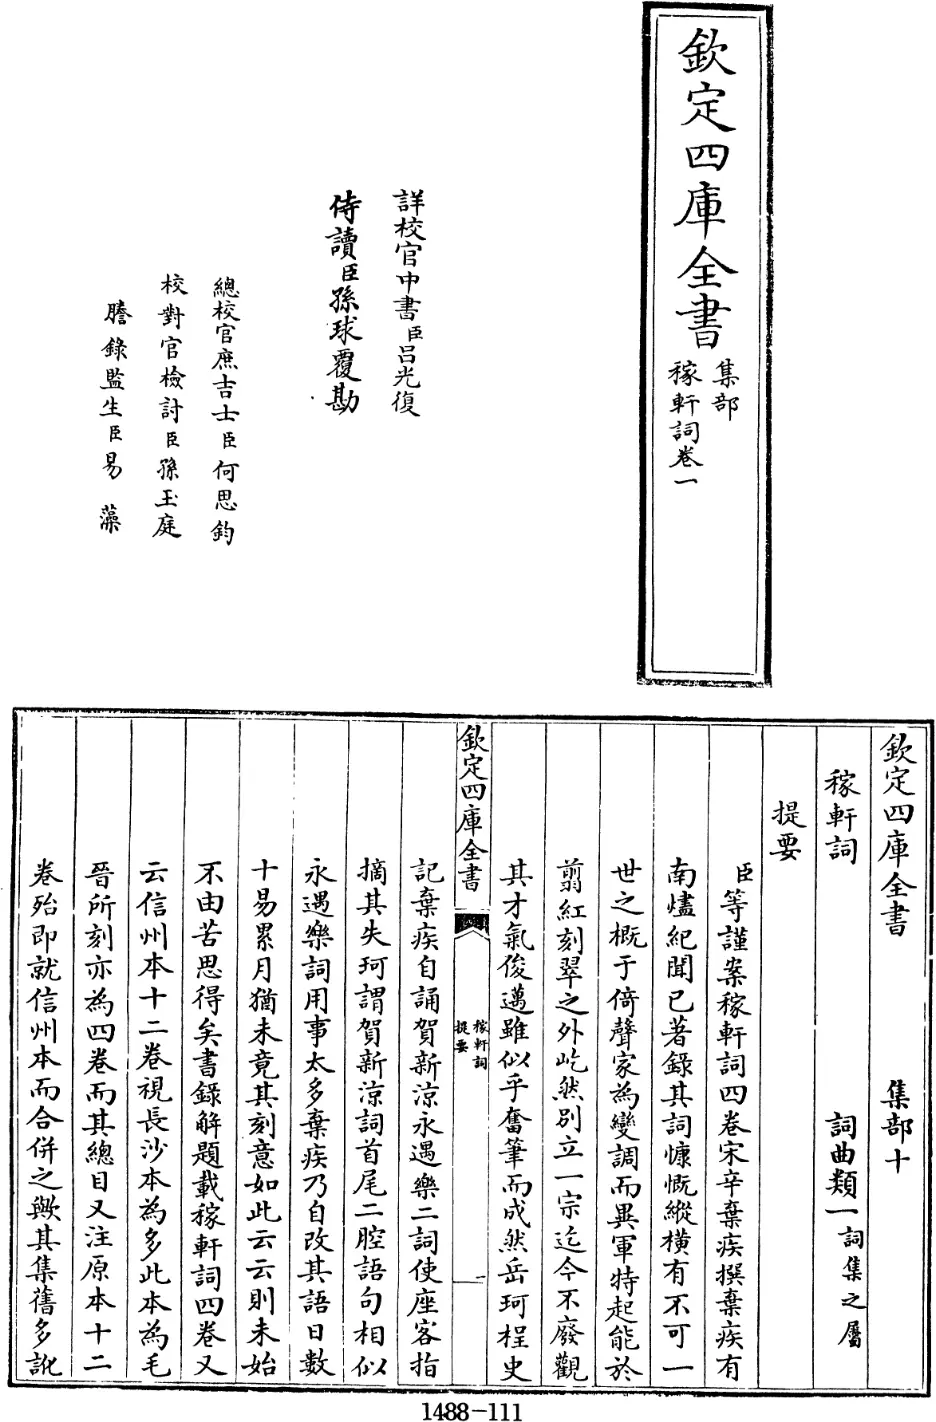 欽定四庫全書
集部
稼軒詞卷一
詳校官中書臣呂光復
侍讀臣孫球覆勘
總校官庶吉士臣何思鈞
校對官檢討臣孫玉庭
謄錄監生臣易藻
欽定四庫全書 集部十
稼軒詞 詞曲類一詞集之屬
提要
臣等謹案稼軒詞四卷宋辛棄疾撰棄疾有
南燼紀聞已著錄其詞慷慨縱横有不可一
世之概于倚聲家為變調而異軍特起能於
翦紅刻翠之外屹然別立一宗迄今不廢觀
其才氣俊邁雖似乎奮筆而成然岳珂桯史
欽定四庫全書
稼軒詞
提要
一
記棄疾自誦賀新涼永遇樂二詞使座客指
摘其失珂謂賀新涼詞首尾二腔語句相似
永遇樂詞用事太多棄疾乃自改其語日數
十易累月猶未竟其刻意如此云云則未始
不由苦思得矣書錄解題載稼軒詞四卷又
云信州本十二卷視長沙本為多此本為毛
晉所刻亦為四卷而其總目又注原本十二
卷殆即就信州本而合併之歟其集舊多訛
1488-111